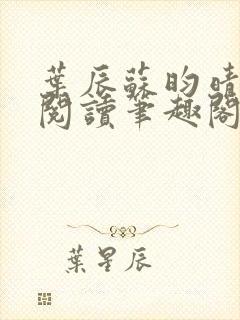 葉辰蘇昀晴
閱讀筆趣閣
葉星辰